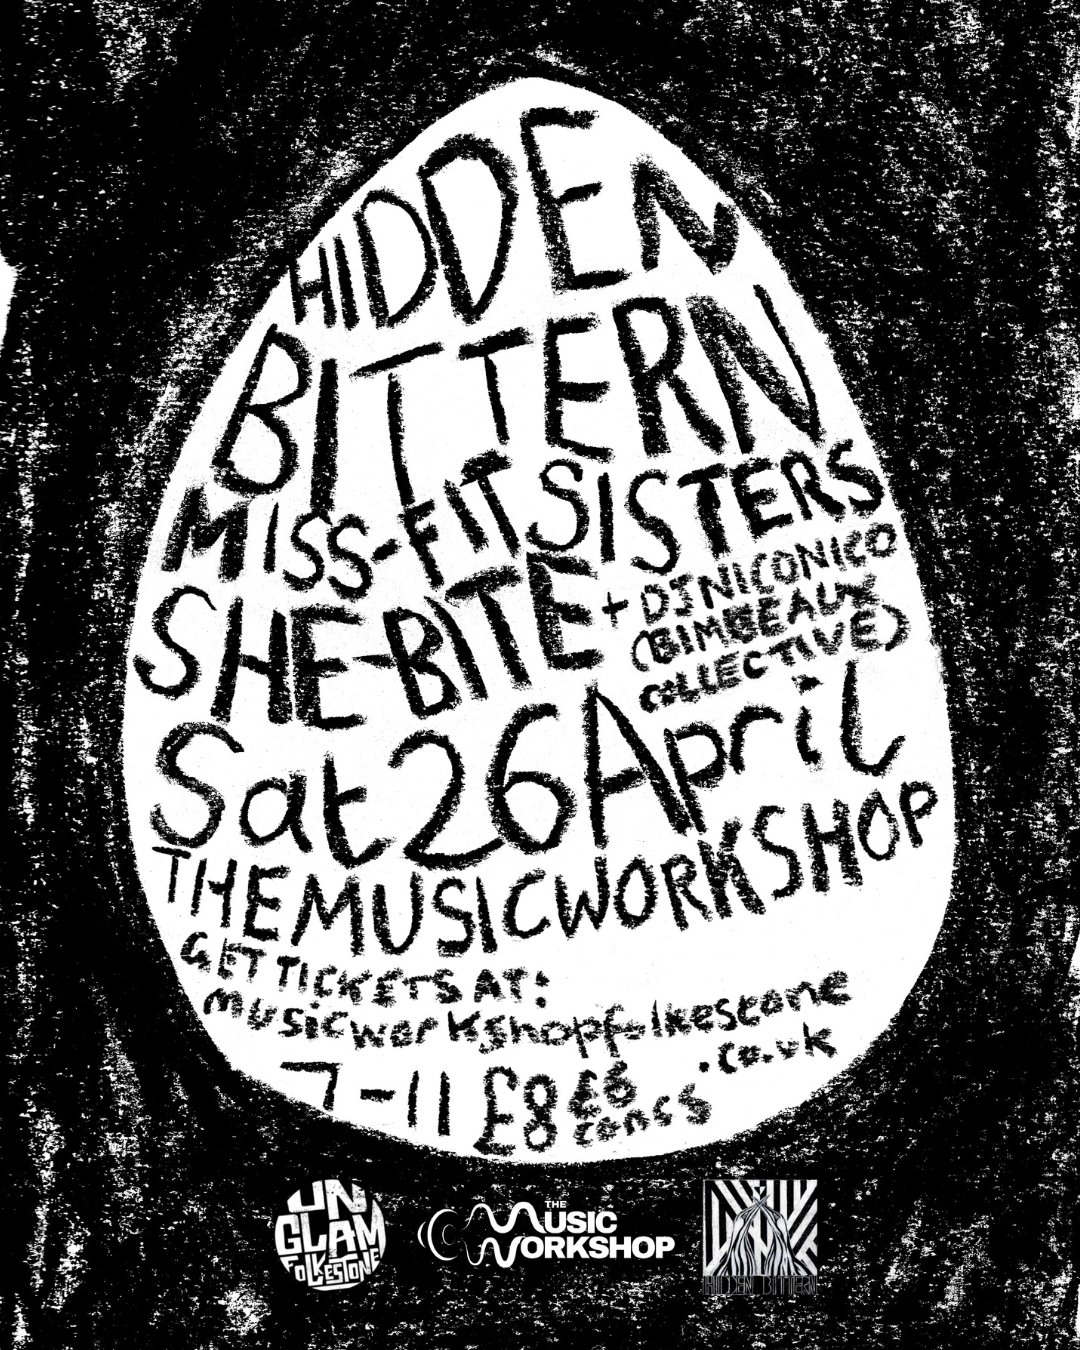 HIDDEN
BITTERN
MISS-FIT SISTERS
SHE-BITE + DJ NICONICO
(BIMBEAUX
COLLECTIVE)
Sat 26 April
THE MUSIC WORKSHOP
GET TICKETS AT:
musicworkshopfolkestone
.co.uk
7-11 £8 £6
concs
UN
GLAM
FOLKESTONE
THE
MUSIC
WORKSHOP
HIDDEN BITTERN